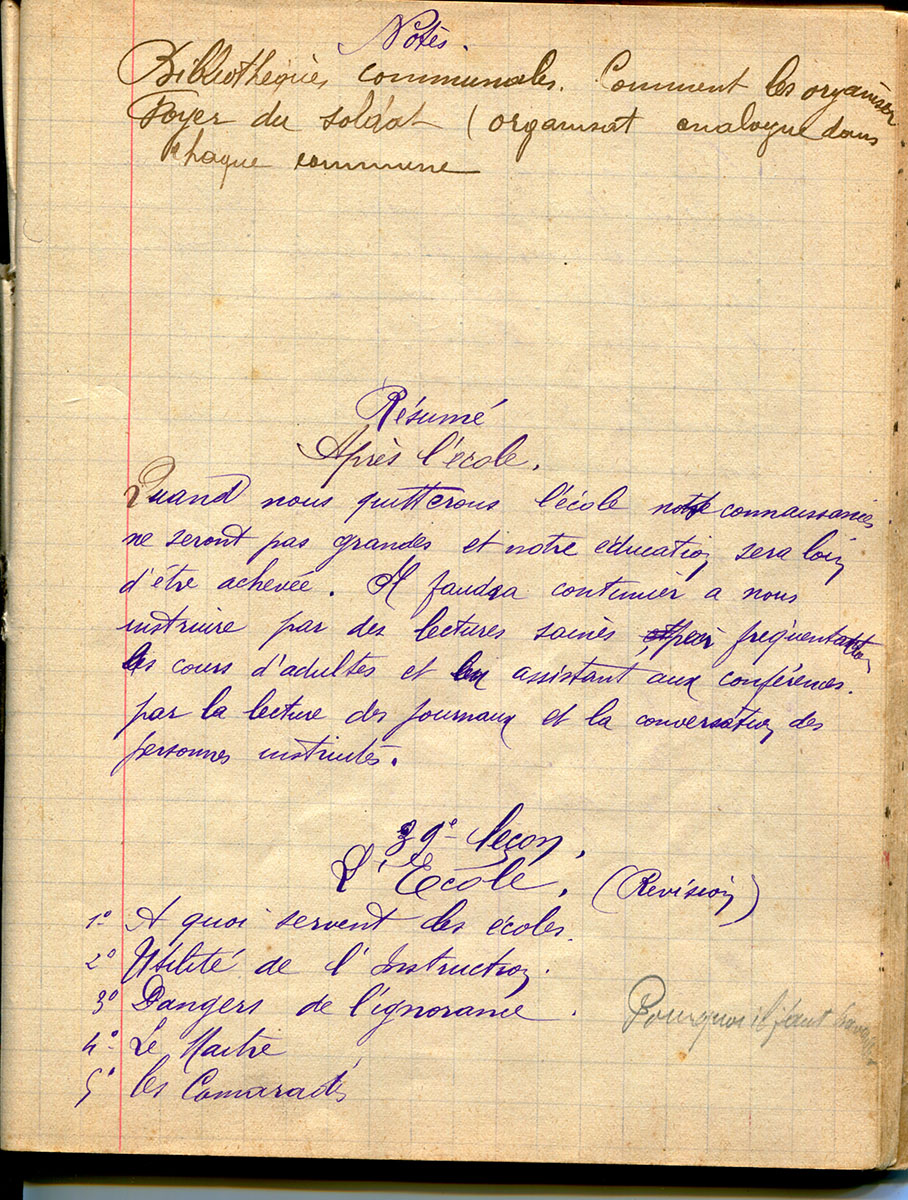 Notes.
Bibliothèques communales. Comment les organiser
Foyer du soldat (organisat analogue dans
chaque commune
Résumé
Après l'école.
Quand nous quitterons l'école notre connaissances
ne seront pas grandes et notre éducation sera loin
d'être achevée. Il faudra continuer a nous
instruire par des lectures saines, frequentation
les cours d'adultes et en assistant aux conférences.
par la lecture des journaux et la conversation des
personnes instruites.
39e leçon.
L'Ecole. (Revision)
1° A quoi servent les écoles.
2° Utilité de l'Instruction.
3° Dangers de l'ignorance.
Pourquoi il faut travailler
4° Le Maitre
5° Les Camarades